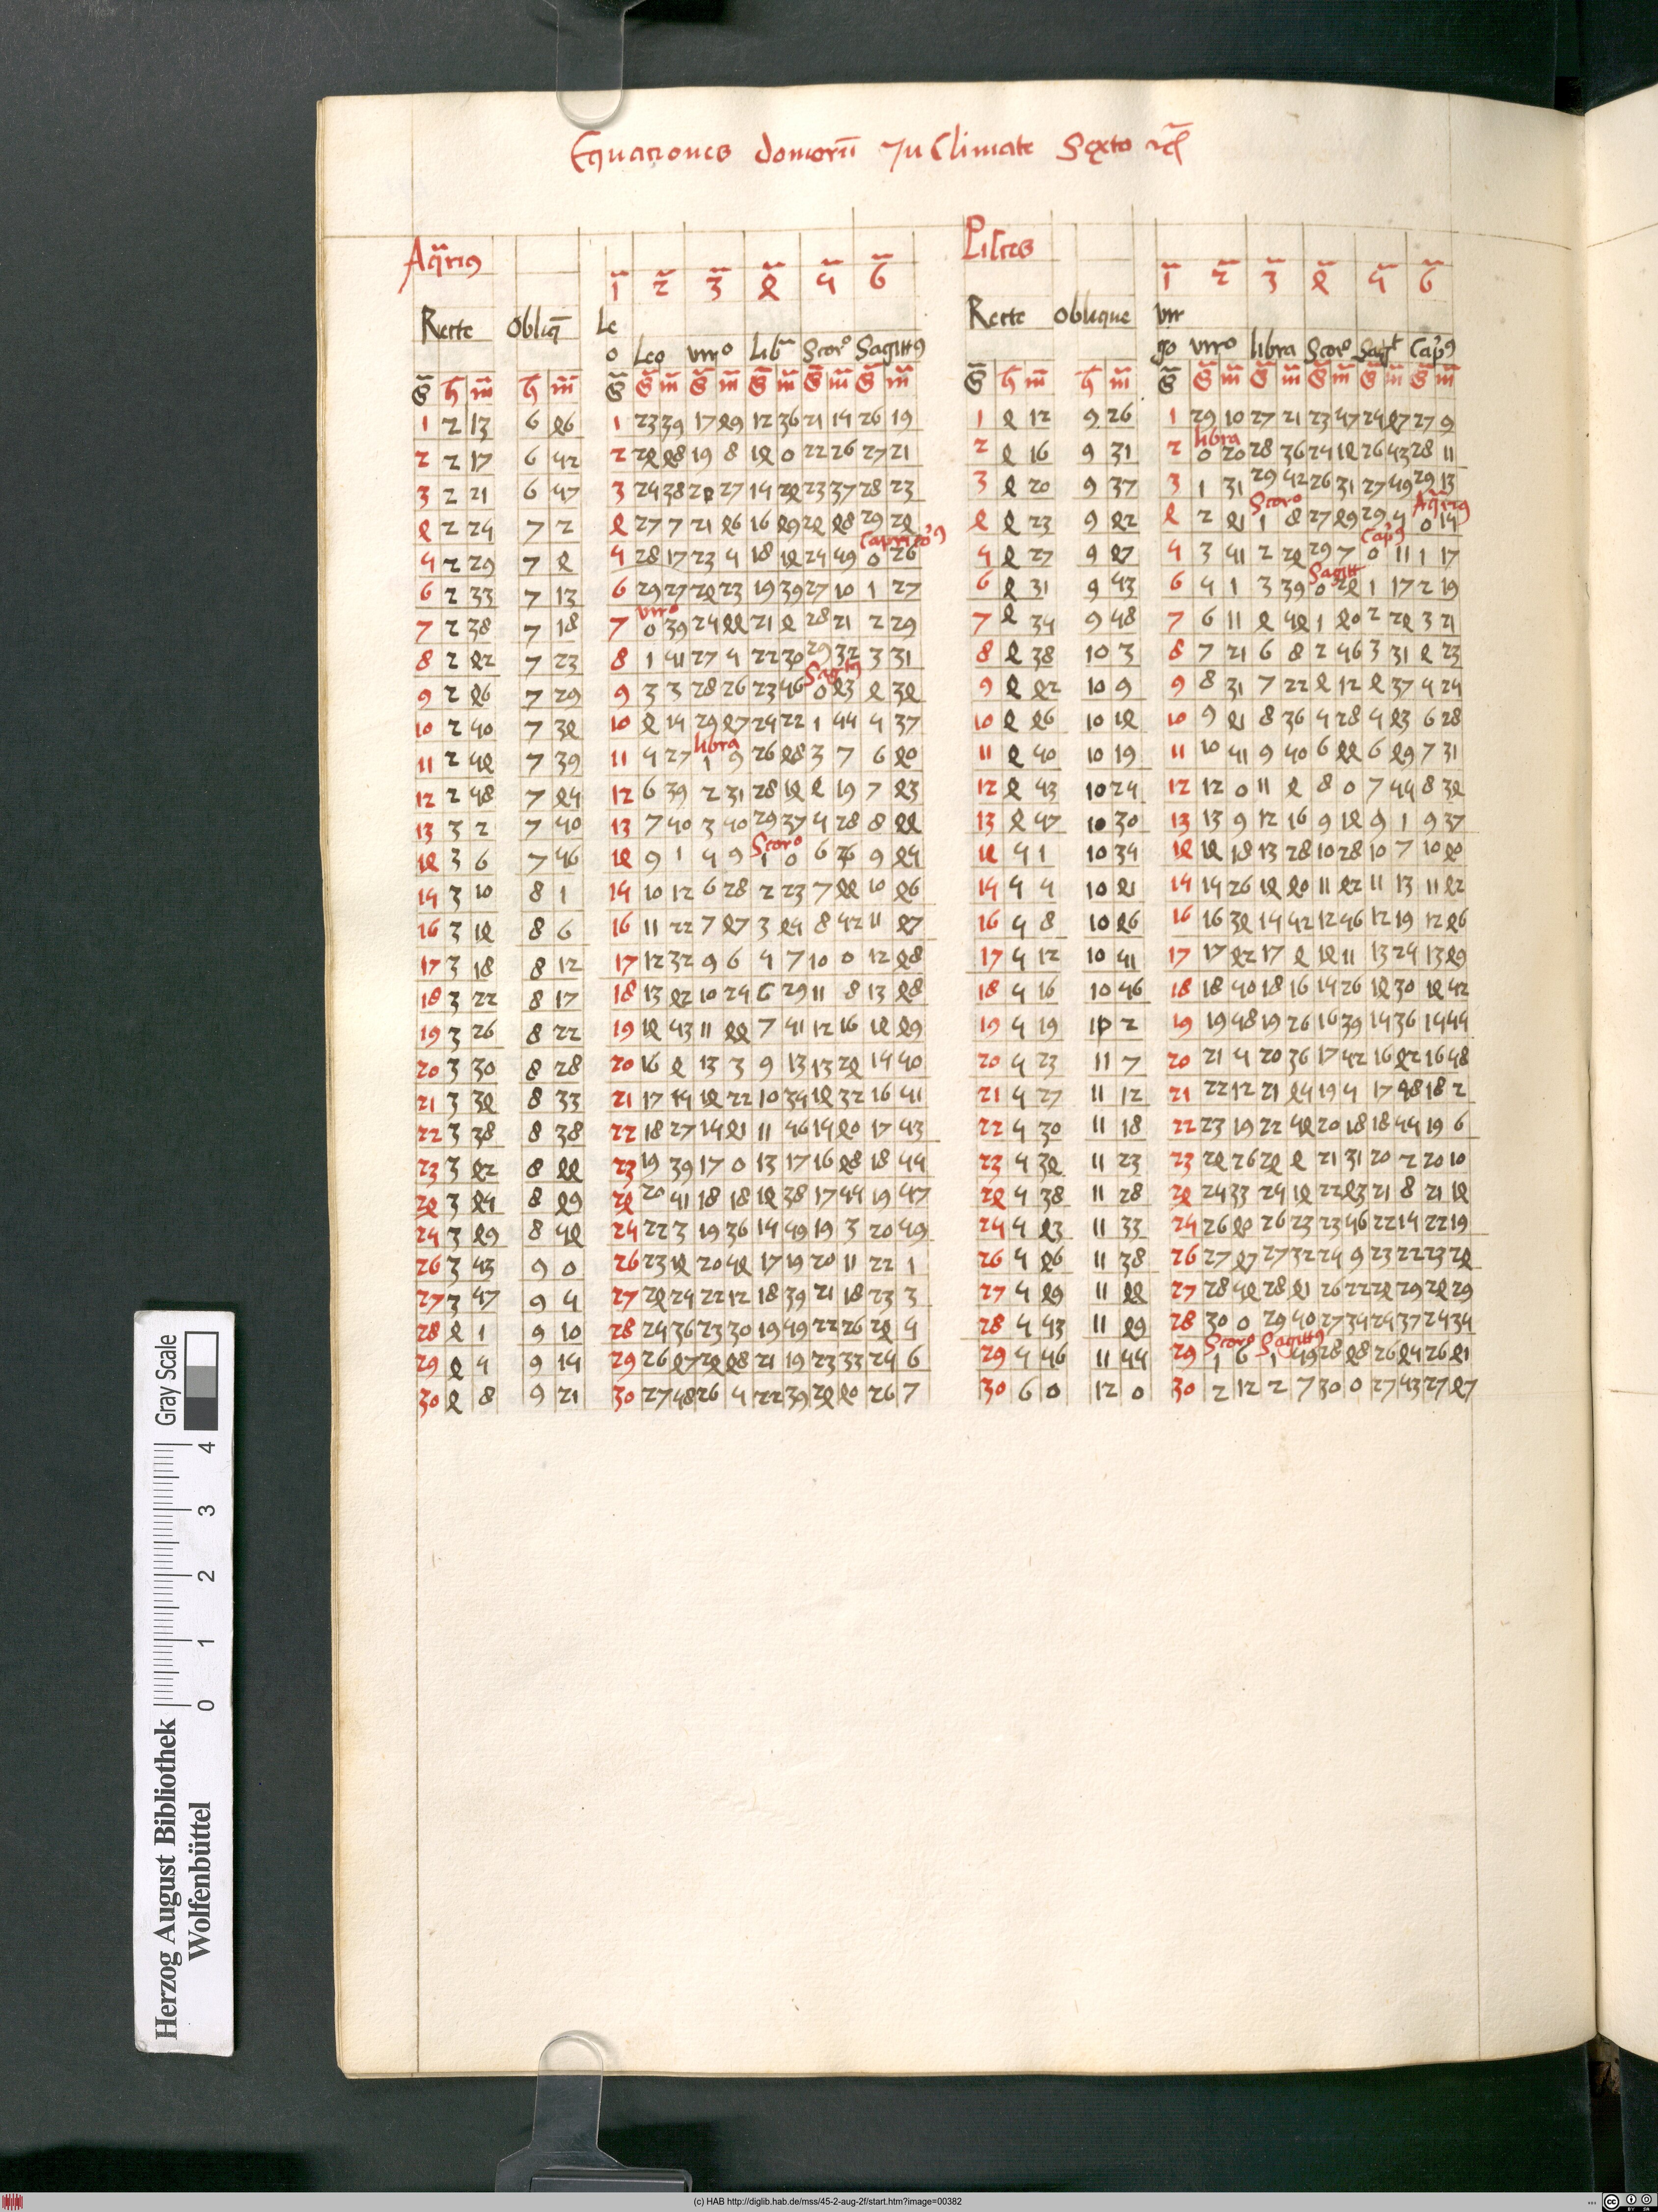 Equaciones domorū In Climate Sexto etc̄
Aq̄rius Pisces
1 2 3 4 5 6 1 2 3 4 5 6
Recte Obliq̄ Le Recte Oblique vir
o Leo virgo Lib Scor Sagitt go virgo libra Scor Sagit Cap
G h m h m G G m G m G m G m G m G h m h m G G m G m G m G m G m
1 2 13 6 46 1 23 39 17 49 12 36 21 15 26 19 1 4 12 9 26 1 29 10 27 21 23 57 25 47 27 9
libra
2 2 17 6 52 2 24 48 19 8 14 0 22 26 27 21 2 4 16 9 31 2 0 20 28 36 25 14 26 53 28 11
3 2 21 6 57 3 25 38 20 27 15 24 23 37 28 23 3 4 20 9 37 3 1 31 29 52 26 31 27 59 29 13
Scor Aq̄rius
4 2 25 7 2 4 27 7 21 46 16 49 24 48 29 24 4 4 23 9 42 4 2 41 1 8 27 49 29 5 0 15
Capricor Cap
5 2 29 7 4 5 28 17 23 5 18 14 25 59 0 26 5 4 27 9 47 5 3 51 2 24 29 7 0 11 1 17
Sagitt
6 2 33 7 13 6 29 27 24 23 19 39 27 10 1 27 6 4 31 9 53 6 5 1 3 39 0 24 1 17 2 19
virgo
7 2 38 7 18 7 0 39 25 44 21 4 28 21 2 29 7 4 35 9 58 7 6 11 4 54 1 40 2 24 3 21
8 2 42 7 23 8 1 51 27 5 22 30 29 32 3 31 8 4 38 10 3 8 7 21 6 8 2 56 3 31 4 23
Sagitt
9 2 46 7 29 9 3 3 28 26 23 56 0 43 4 34 9 4 42 10 9 9 8 31 7 22 4 12 4 37 5 25
10 2 50 7 34 10 4 15 29 47 25 22 1 55 5 37 10 4 46 10 14 10 9 41 8 36 5 28 5 43 6 28
libra
11 2 54 7 39 11 5 27 1 9 26 48 3 7 6 40 11 4 50 10 19 11 10 51 9 50 6 44 6 49 7 31
12 2 58 7 45 12 6 39 2 31 28 14 4 19 7 43 12 4 53 10 25 12 12 0 11 4 8 0 7 55 8 34
13 3 2 7 50 13 7 50 3 50 29 37 5 28 8 44 13 4 57 10 30 13 13 9 12 16 9 14 9 1 9 37
Scor
14 3 6 7 56 14 9 1 5 9 1 0 6 36 9 45 14 5 1 10 35 14 14 18 13 28 10 28 10 7 10 40
15 3 10 8 1 15 10 12 6 28 2 23 7 44 10 46 15 5 5 10 41 15 15 26 14 40 11 42 11 13 11 42
16 3 14 8 6 16 11 22 7 47 3 45 8 52 11 47 16 5 8 10 46 16 16 34 15 52 12 56 12 19 12 46
17 3 18 8 12 17 12 32 9 6 5 7 10 0 12 48 17 5 12 10 51 17 17 42 17 4 14 11 13 25 13 49
18 3 22 8 17 18 13 42 10 25 6 29 11 8 13 48 18 5 16 10 56 18 18 50 18 16 15 26 14 30 14 52
19 3 26 8 22 19 14 53 11 44 7 51 12 16 14 49 19 5 19 11 2 19 19 58 19 26 16 39 15 36 15 55
20 3 30 8 28 20 16 4 13 3 9 13 13 24 15 50 20 5 23 11 7 20 21 5 20 36 17 52 16 42 16 58
21 3 34 8 33 21 17 15 14 22 10 35 14 32 16 51 21 5 27 11 12 21 22 12 21 45 19 5 17 48 18 2
22 3 38 8 38 22 18 27 15 41 11 56 15 40 17 53 22 5 30 11 18 22 23 19 22 54 20 18 18 55 19 6
23 3 42 8 44 23 19 39 17 0 13 17 16 48 18 55 23 5 34 11 23 23 24 26 24 4 21 31 20 2 20 10
24 3 45 8 49 24 20 51 18 18 14 38 17 55 19 57 24 5 38 11 28 24 25 33 25 14 22 43 21 8 21 14
25 3 49 8 54 25 22 3 19 36 15 59 19 3 20 59 25 5 43 11 33 25 26 40 26 23 23 56 22 15 22 19
26 3 53 9 0 26 23 14 20 54 17 19 20 11 22 1 26 5 46 11 38 26 27 47 27 32 25 9 23 22 23 24
27 3 57 9 5 27 24 25 22 12 18 39 21 18 23 3 27 5 49 11 44 27 28 54 28 41 26 22 24 29 24 29
28 4 1 9 10 28 25 36 23 30 19 59 22 26 24 5 28 5 53 11 49 28 30 0 29 50 27 35 25 37 25 35
Scor Sagitt
29 4 5 9 15 29 26 47 24 48 21 19 23 33 25 6 29 5 56 11 55 29 1 6 1 59 28 48 26 45 26 41
30 4 8 9 21 30 27 58 26 5 22 39 24 40 26 7 30 6 0 12 0 30 2 12 2 7 30 0 27 53 27 47
Herzog August Bibliothek
Wolfenbüttel
0 1 2 3 4
Gray Scale
(c) HAB http://diglib.hab.de/mss/45-2-aug-2f/start.htm?image=00382